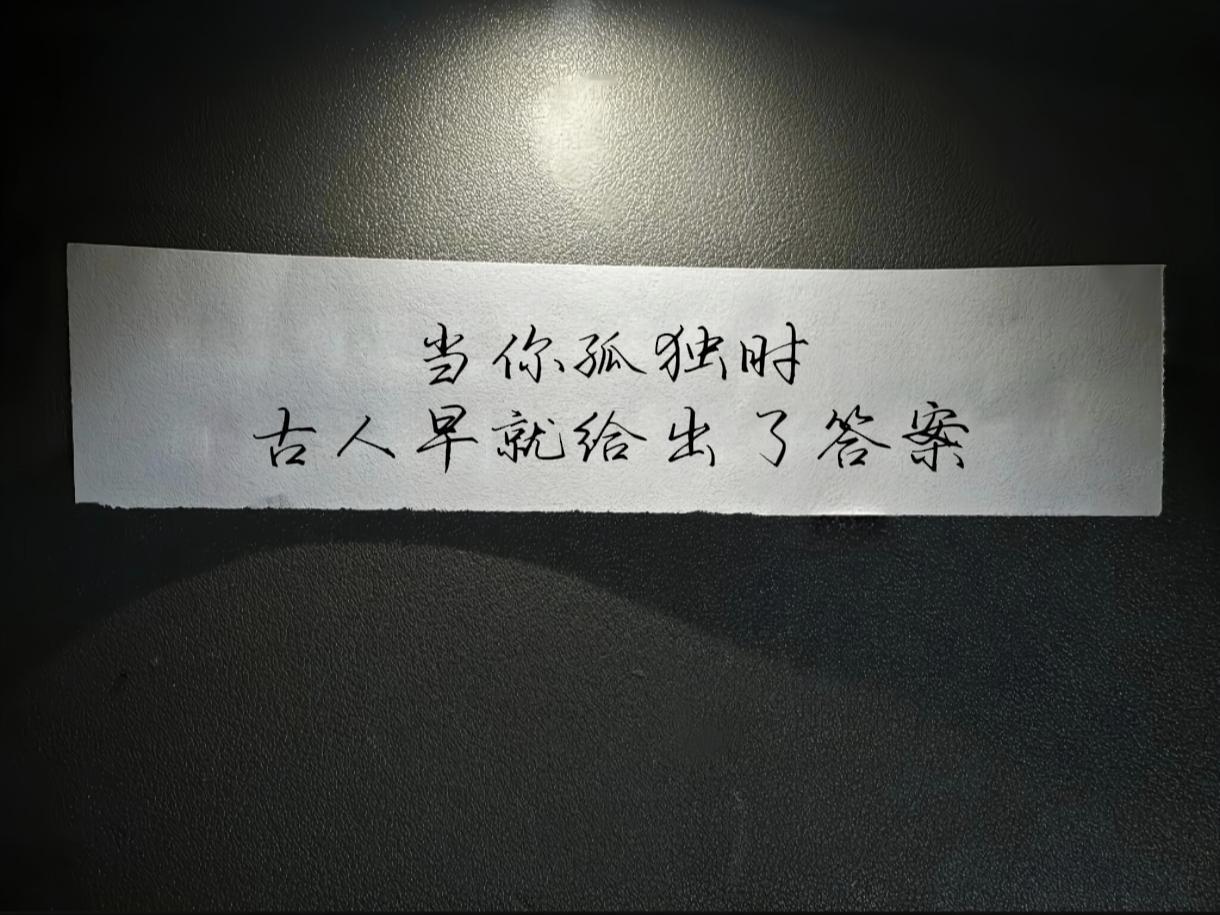 当你孤独时
古人早就给出了答案